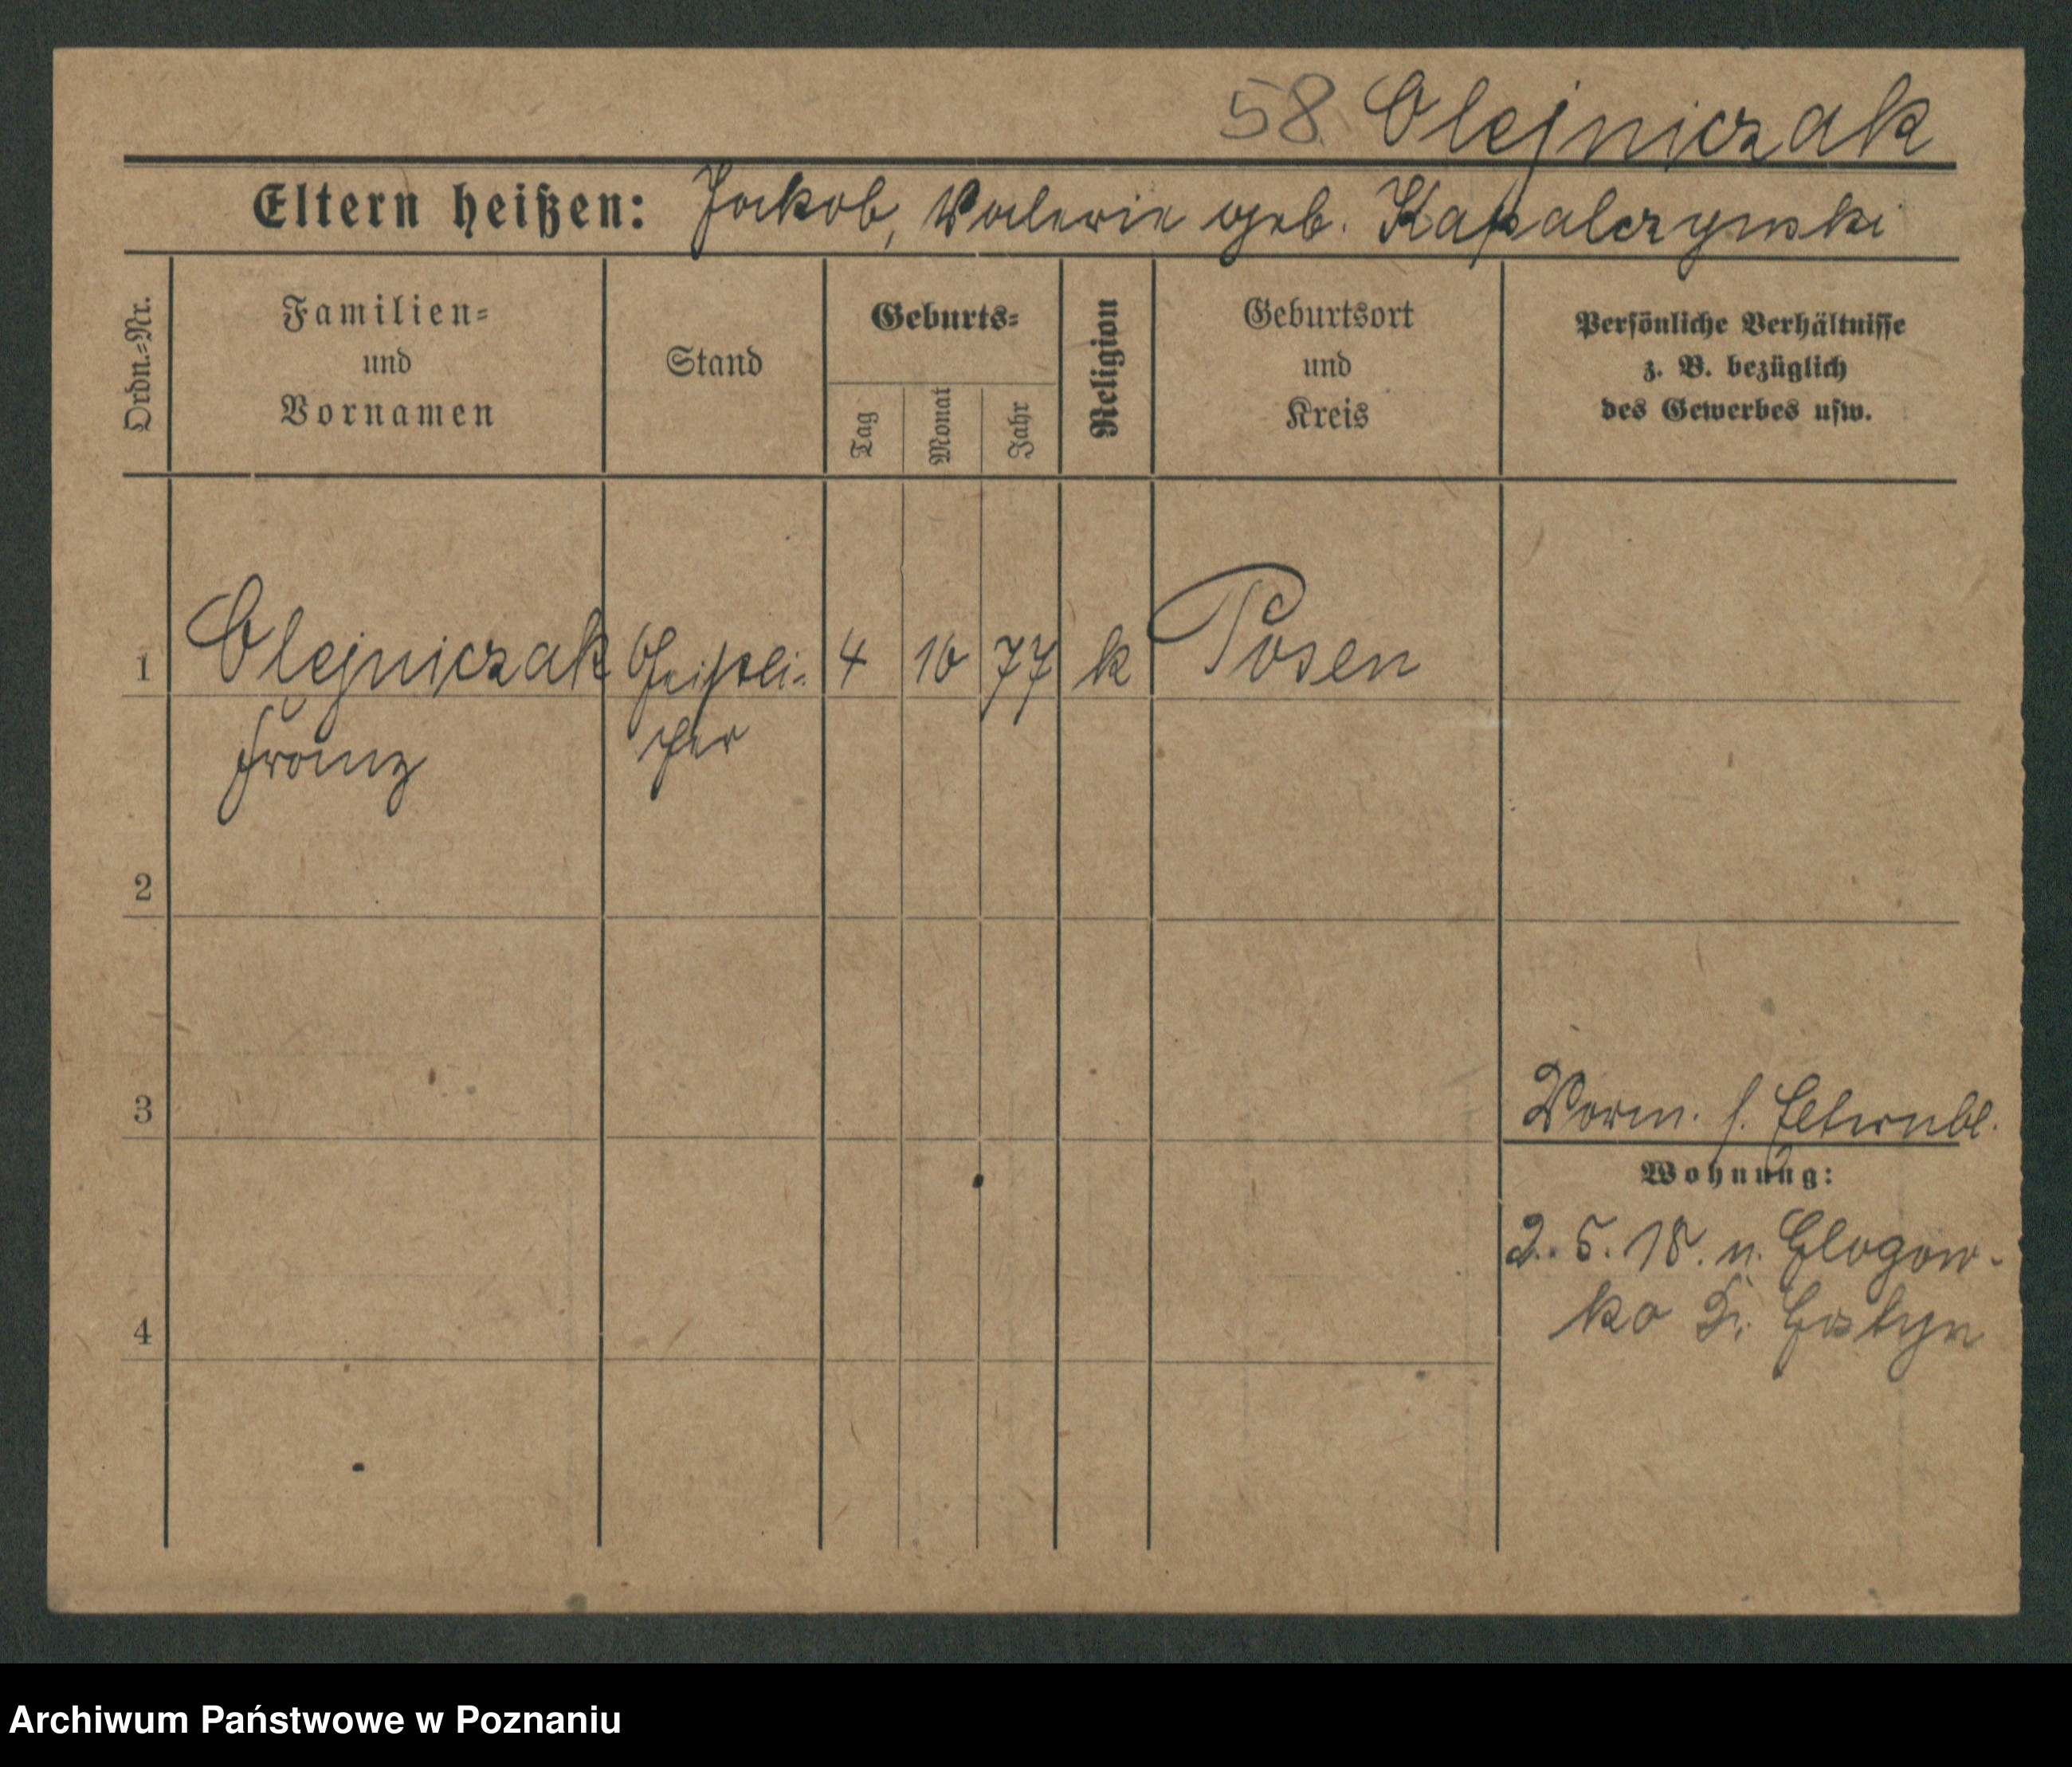 58 Olejniczak
Eltern heißen: Jakob, Valerie geb. Kapalczynski
Ordn.-Nr.
Familien-
und
Vornamen
Stand
Geburts-
Tag
Monat
Jahr
Religion
Geburtsort
und
Kreis
Persönliche Verhältnisse
z. B. bezüglich
des Gewerbes usw.
1 Olejniczak Geistli- 4 10 77 k Posen
Franz cher
2
3
Vorm. s. Elternbl.
Wohnung:
2. 5. 18. n. Glogow-
ko Kr. Gostyn
4
Archiwum Państwowe w Poznaniu